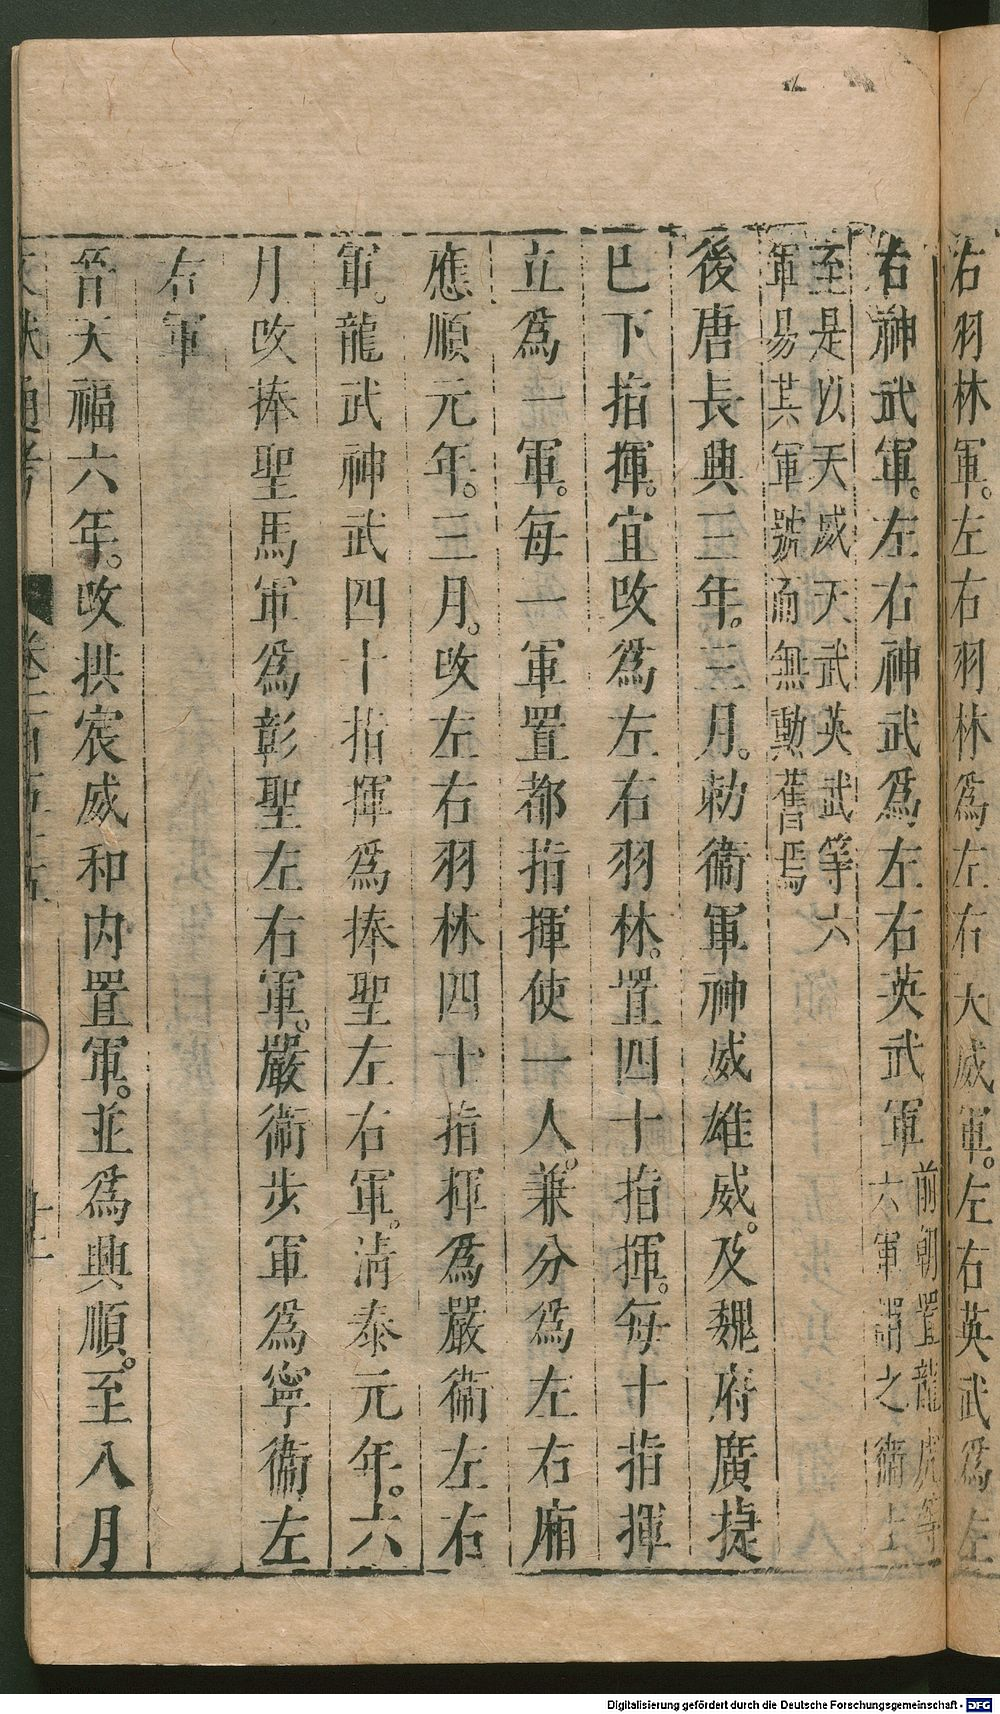 右羽林軍。左右羽林爲左右天威軍。左右英武爲左
右神武軍。左右神武爲左右英武軍
前朝置龍虎等
六軍謂之衞士
至是以天威天武英武等六
軍易其軍號而無勳舊焉
後唐長興三年。三月。勅衞軍神威雄威。及魏府廣捷
已下指揮。宜改爲左右羽林。置四十指揮。每十指揮
立爲一軍。每一軍置都指揮使一人。兼分爲左右廂
應順元年。三月。改左右羽林四十指揮爲嚴衞左右
軍。龍武神武四十指揮爲捧聖左右軍。淸泰元年。六
月改捧聖馬軍爲彰聖左右軍。嚴衞步軍爲寧衞左
右軍
晉天福六年。改拱宸威和內置軍。並爲興順。至八月
文獻通考 卷一百五十五 十二
Digitalisierung gefördert durch die Deutsche Forschungsgemeinschaft - DFG